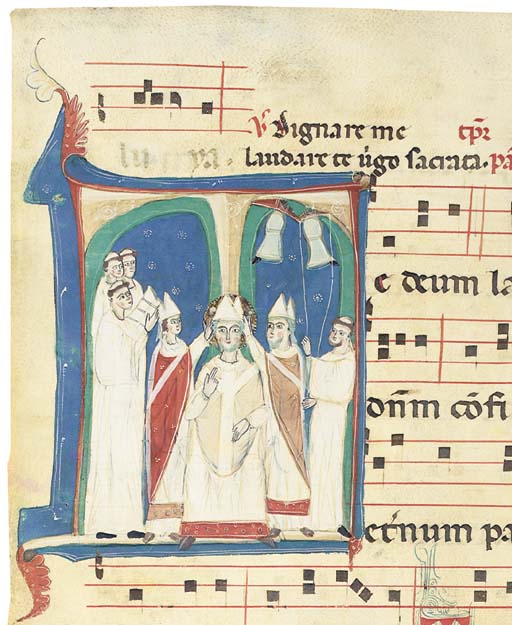 ℣ Dignare me tp̄r
laudare te ūgo sacrata. pā
e deum la
dn̄m cōfi
et̄num pa